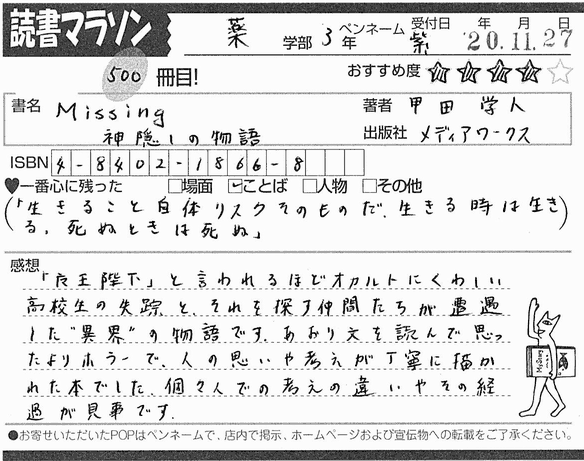 読書マラソン
薬 学部 3年 ペンネーム 紫 受付日 年 月 日 20.11.27
500 冊目!
おすすめ度 ★★★★☆
書名 Missing 著者 甲田 学人
神隠しの物語 出版社 メディアワークス
ISBN 4-8402-1866-8
♥一番心に残った □場面 ☑ことば □人物 □その他
(「生きること自体リスクそのものだ、生きる時は生き
る、死ぬときは死ぬ」)
感想
「魔王陛下」と言われるほどオカルトにくわしい
高校生の失踪と、それを探す仲間たちが遭遇
した"異界"の物語です。あおり文を読んで思っ
たよりホラーで、人の思いや考えが丁寧に描か
れた本でした。個々人での考えの違いやその経
過が見事です。
Missing
●お寄せいただいたPOPはペンネームで、店内で掲示、ホームページおよび宣伝物への転載をご了承ください。